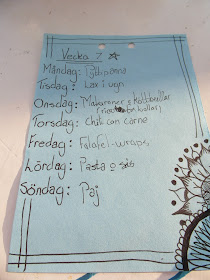 Vecka 7
Måndag: Pyttipanna
Tisdag: Lax i ugn
Onsdag: Makaroner & köttbullar
Torsdag: Chili con carne
Fredag: Falafel-wraps
Lördag: Pasta o sås
Söndag: Paj